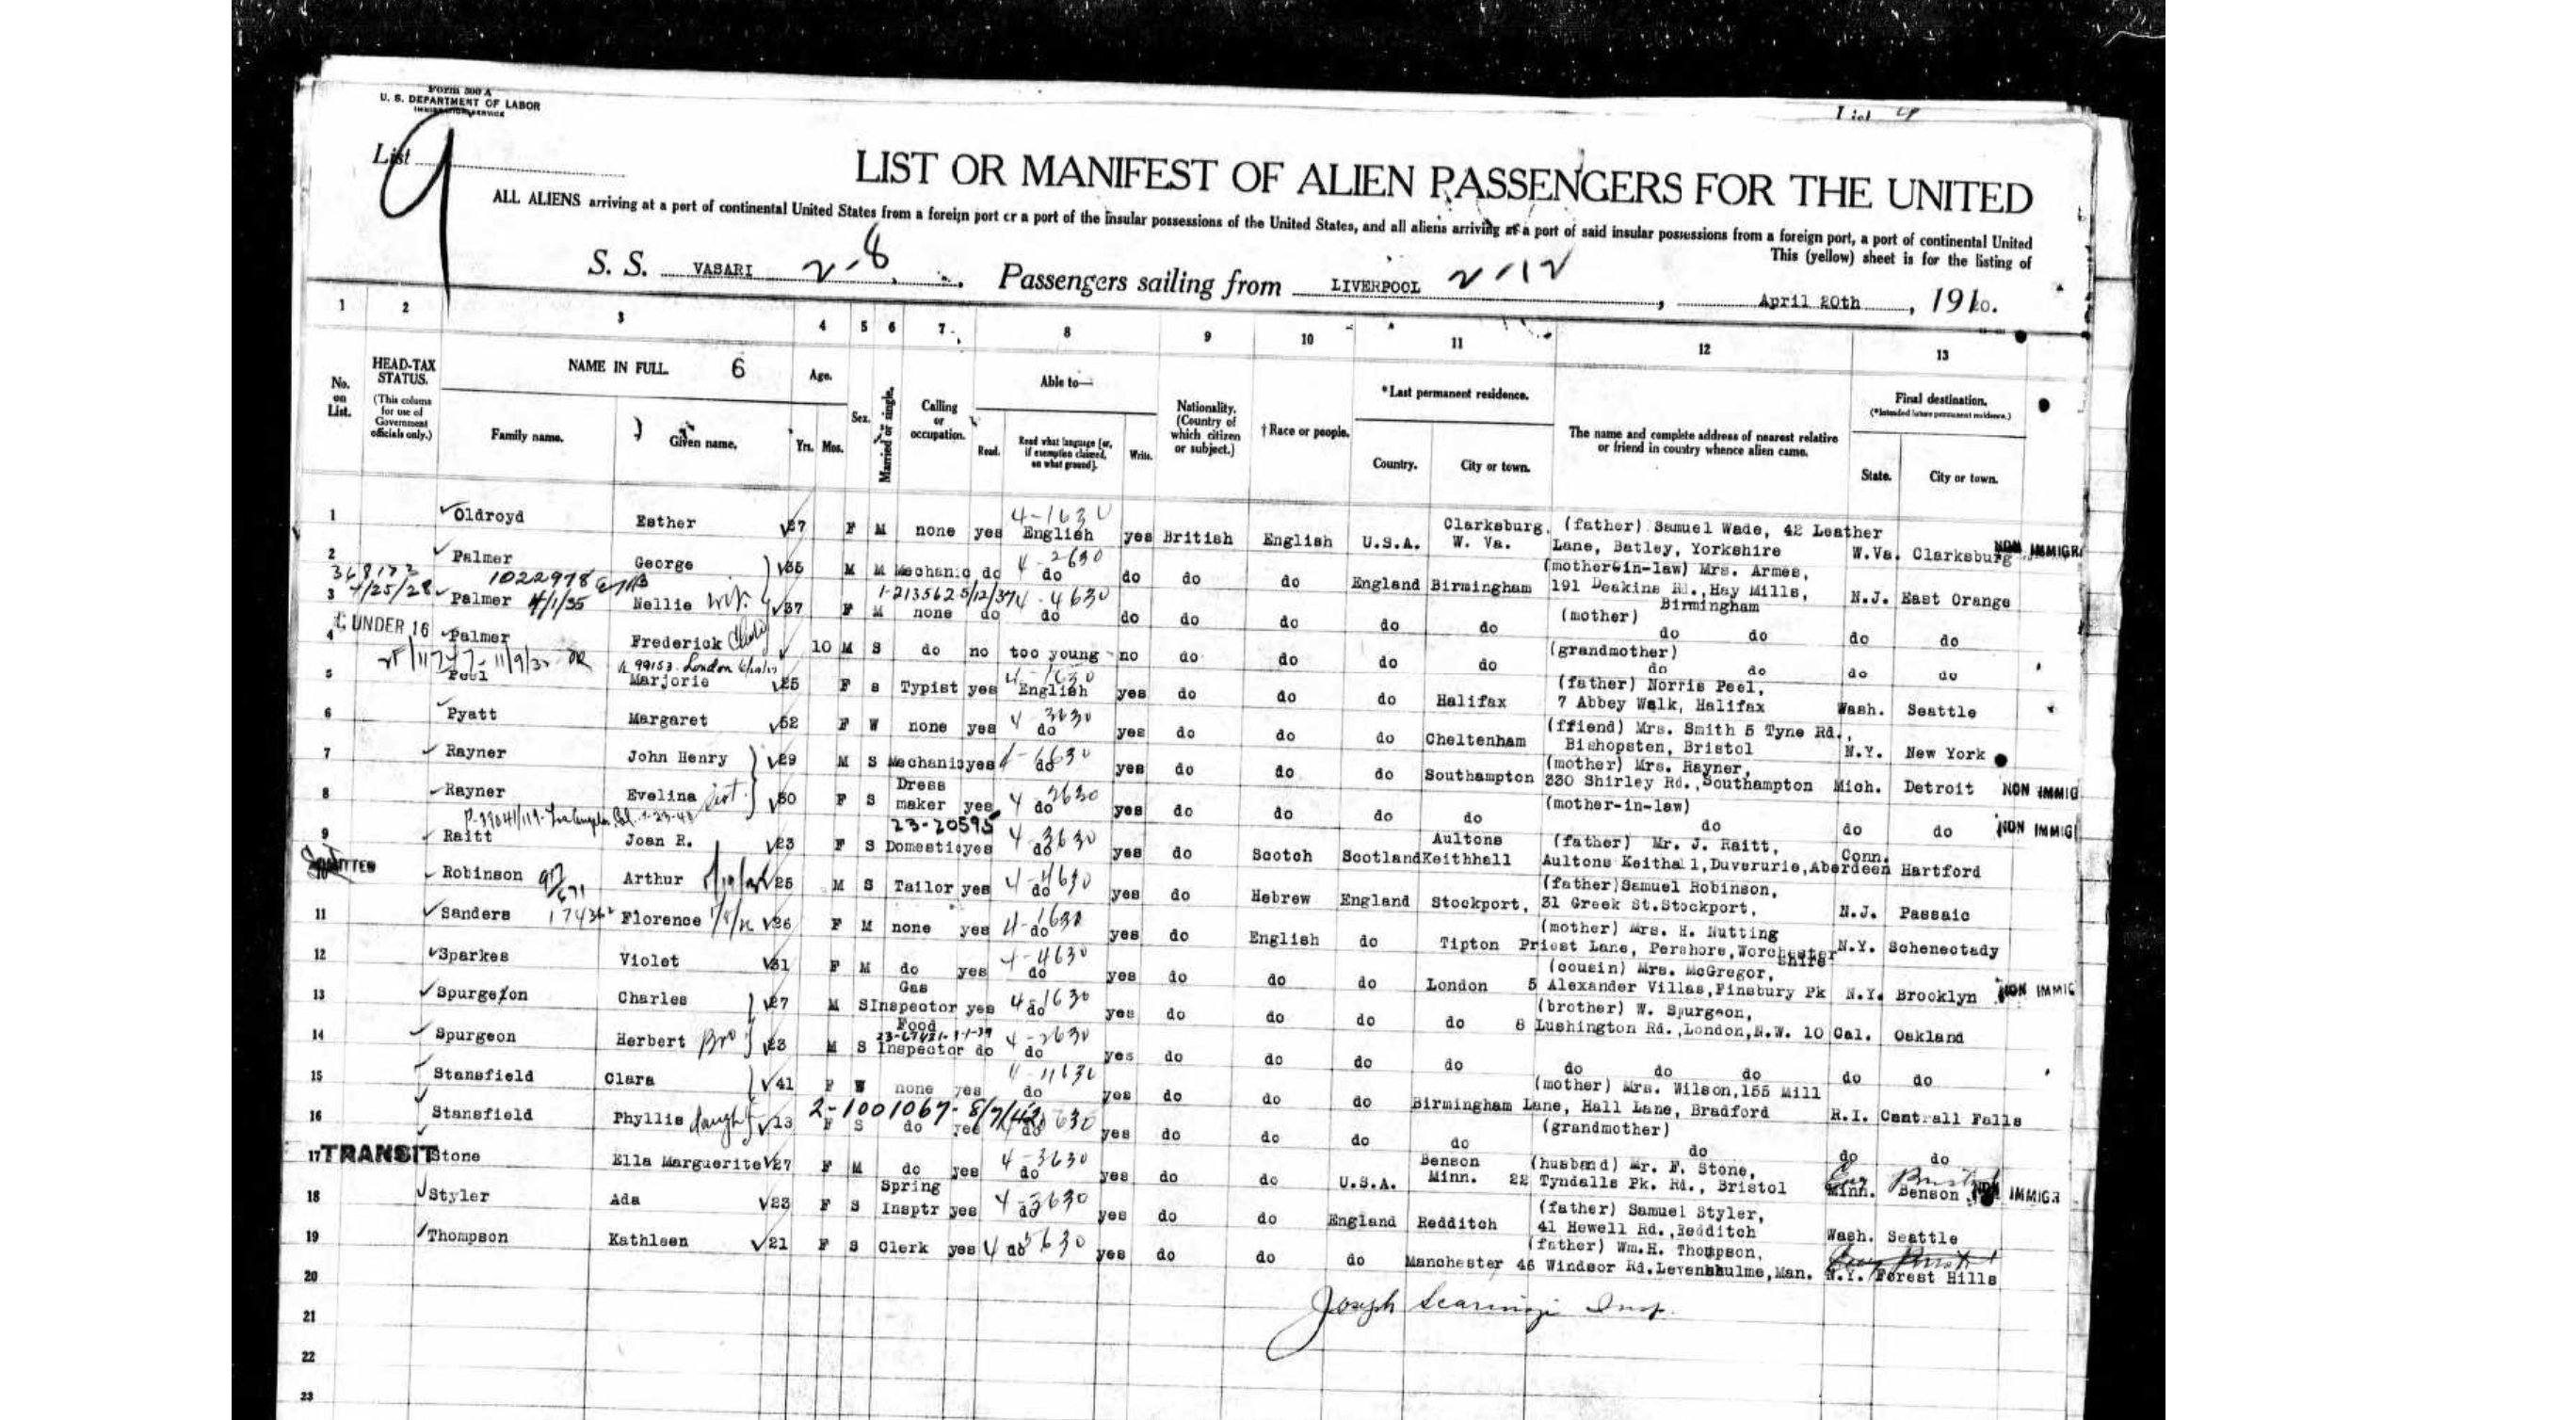 Form 500 A
U. S. DEPARTMENT OF LABOR
IMMIGRATION SERVICE
List 9
List 9
LIST OR MANIFEST OF ALIEN PASSENGERS FOR THE UNITED
ALL ALIENS arriving at a port of continental United States from a foreign port or a port of the insular possessions of the United States, and all aliens arriving at a port of said insular possessions from a foreign port, a port of continental United
This (yellow) sheet is for the listing of
S. S. VASARI 2-8, Passengers sailing from LIVERPOOL 2-12, April 20th, 1920.
1 2 3 4 5 6 7 8 9 10 11 12 13
No. on List.
HEAD-TAX STATUS.
(This column for use of Government officials only.)
NAME IN FULL. 6
Family name. Given name.
Age.
Yrs. Mos.
Sex.
Married or single.
Calling or occupation.
Able to—
Read. Read what language [or, if exemption claimed, on what ground]. Write.
Nationality. (Country of which citizen or subject.)
†Race or people.
*Last permanent residence.
Country. City or town.
The name and complete address of nearest relative or friend in country whence alien came.
Final destination.
(*Intended future permanent residence.)
State. City or town.
1 Oldroyd Esther 37 F M none yes English 4-1630 yes British English U.S.A. Clarksburg. W. Va. (father) Samuel Wade, 42 Leather Lane, Batley, Yorkshire W.Va. Clarksburg NON IMMIGR
2 Palmer George 35 M M Mechanic do do 4-2630 do do do England Birmingham (mother-in-law) Mrs. Armes, 191 Deakins Rd., Hay Mills, Birmingham N.J. East Orange
1022978
4/25/28
1-213562 5/12/37
3 Palmer 4/1/35 Nellie wife 37 F M none do do 4-4630 do do do do do (mother) do do do do
UNDER 16
4 Palmer Frederick 10 M S do no too young no do do do do (grandmother) do do do do
99153 London
5 Peel Marjorie 25 F s Typist yes English 4-1630 yes do do do Halifax (father) Norris Peel, 7 Abbey Walk, Halifax Wash. Seattle
6 Pyatt Margaret 52 F W none yes do 4-3630 yes do do do Cheltenham (ffiend) Mrs. Smith 5 Tyne Rd., Bishopsten, Bristol N.Y. New York
7 Rayner John Henry 29 M S Mechanic yes do 4-6630 yes do do do Southampton (mother) Mrs. Rayner, 230 Shirley Rd., Southampton Mich. Detroit NON IMMIG
8 Rayner Evelina sist 30 F S Dress maker yes do 4-3630 yes do do do do (mother-in-law) do do do NON IMMIG
23-20595
9 Raitt Joan R. 23 F S Domestic yes do 4-3630 yes do Scotch Scotland Aultons Keithhall (father) Mr. J. Raitt, Aultons Keithall, Duverurie, Aberdeen Conn. Hartford
ADMITTED
Robinson Arthur 25 M S Tailor yes do 4-4630 yes do Hebrew England Stockport, (father) Samuel Robinson, 31 Greek St. Stockport, N.J. Passaic
11 Sanders Florence 26 F M none yes do 4-1630 yes do English do Tipton (mother) Mrs. H. Nutting Priest Lane, Pershore, Worchester shire N.Y. Schenectady
12 Sparkes Violet 31 F M do yes do 4-4630 yes do do do London (cousin) Mrs. McGregor, 5 Alexander Villas, Finsbury Pk N.Y. Brooklyn NON IMMIG
13 Spurgeon Charles 27 M S Gas Inspector yes do 4-1630 yes do do do do (brother) W. Spurgeon, 8 Lushington Rd., London, N.W. 10 Cal. Oakland
14 Spurgeon Herbert Bro 23 M S Food Inspector do do 4-2630 yes do do do do do do do do do
15 Stansfield Clara 41 F W none yes do 4-4630 yes do do do Birmingham (mother) Mrs. Wilson, 155 Mill Lane, Hall Lane, Bradford R.I. Centrall Falls
2-1001067-8/7/42
16 Stansfield Phyllis daught 13 F S do yes do 630 yes do do do do (grandmother) do do do
17 TRANSIT Stone Ella Marguerite 27 F M do yes do 4-3630 yes do do U.S.A. Benson Minn. (husband) Mr. F. Stone, 22 Tyndalls Pk. Rd., Bristol Eng Bristol Minn. Benson NON IMMIGR
18 Styler Ada 23 F S Spring Insptr yes do 4-3630 yes do do England Redditch (father) Samuel Styler, 41 Hewell Rd., Redditch Wash. Seattle
19 Thompson Kathleen 21 F S Clerk yes do 4 3630 yes do do do Manchester (father) Wm.H. Thompson, 46 Windsor Rd. Levenshulme, Man. N.Y. Forest Hills
20
Joseph Scaringi Insp.
21
22
23